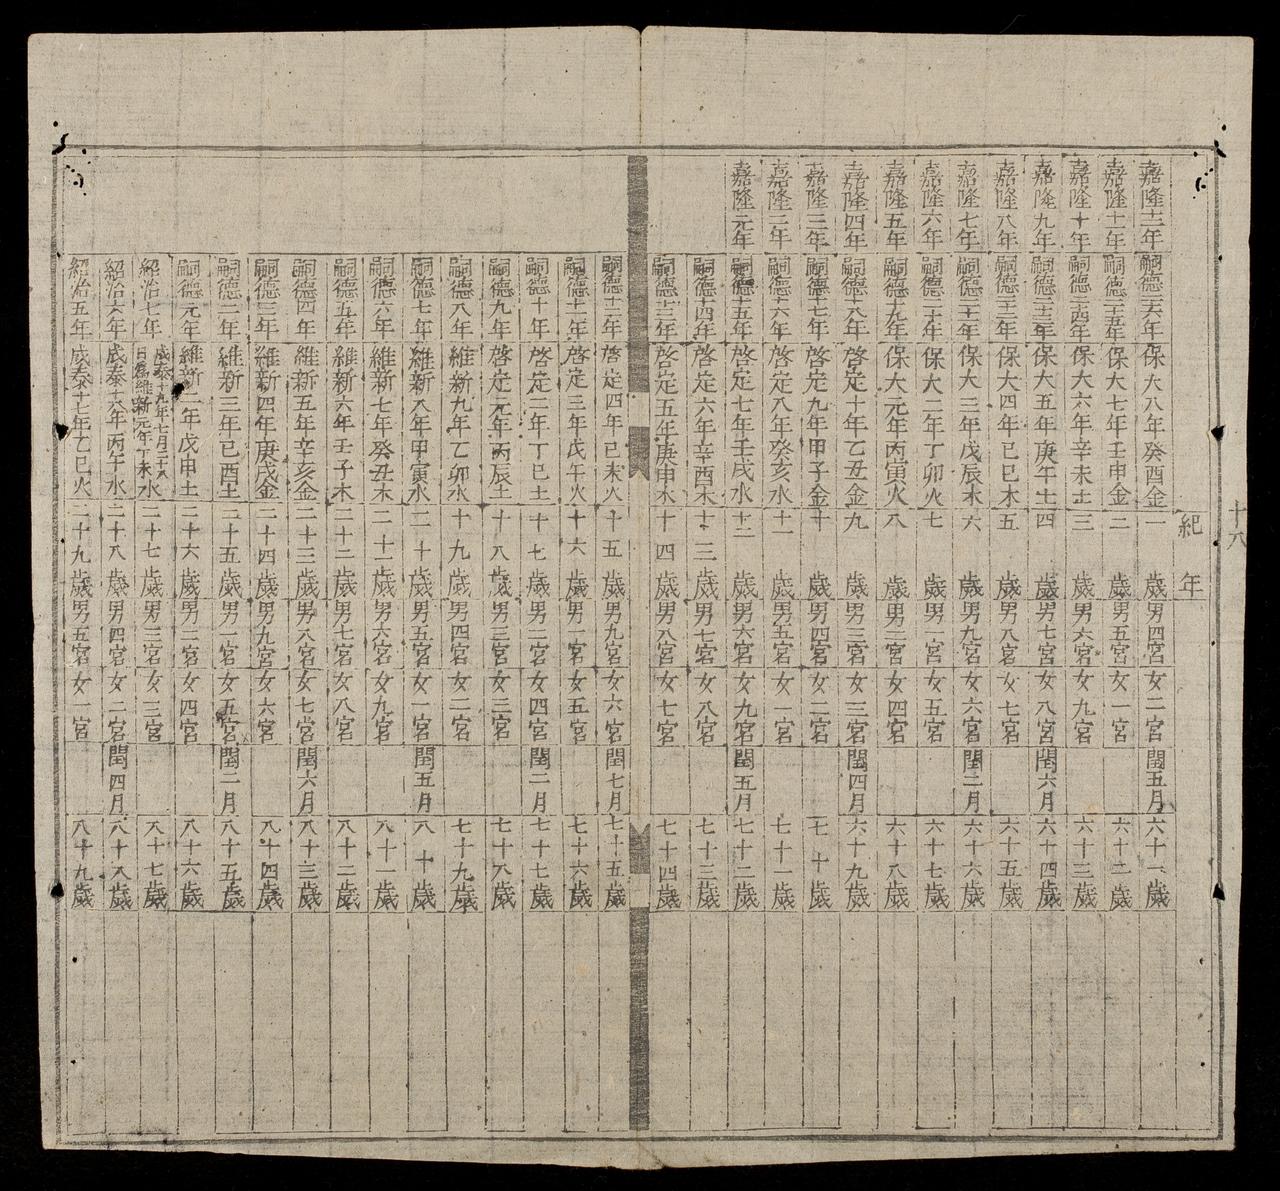 十八
紀年
嘉隆十二年嗣德二十六年保大八年癸酉金一歲男四宮女二宮閏五月六十一歲
嘉隆十一年嗣德二十五年保大七年壬申金二歲男五宮女一宮六十二歲
嘉隆十年嗣德二十四年保大六年辛未土三歲男六宮女九宮六十三歲
嘉隆九年嗣德二十三年保大五年庚午土四歲男七宮女八宮閏六月六十四歲
嘉隆八年嗣德二十二年保大四年己巳木五歲男八宮女七宮六十五歲
嘉隆七年嗣德二十一年保大三年戊辰木六歲男九宮女六宮閏二月六十六歲
嘉隆六年嗣德二十年保大二年丁卯火七歲男一宮女五宮六十七歲
嘉隆五年嗣德十九年保大元年丙寅火八歲男二宮女四宮六十八歲
嘉隆四年嗣德十八年啓定十年乙丑金九歲男三宮女三宮閏四月六十九歲
嘉隆三年嗣德十七年啓定九年甲子金十歲男四宮女二宮七十歲
嘉隆二年嗣德十六年啓定八年癸亥水十一歲男五宮女一宮七十一歲
嘉隆元年嗣德十五年啓定七年壬戌水十二歲男六宮女九宮閏五月七十二歲
嗣德十四年啓定六年辛酉木十三歲男七宮女八宮七十三歲
嗣德十三年啓定五年庚申木十四歲男八宮女七宮七十四歲
嗣德十二年啓定四年己未火十五歲男九宮女六宮閏七月七十五歲
嗣德十一年啓定三年戊午火十六歲男一宮女五宮七十六歲
嗣德十年啓定二年丁巳土十七歲男二宮女四宮閏二月七十七歲
嗣德九年啓定元年丙辰土十八歲男三宮女三宮七十八歲
嗣德八年維新九年乙卯水十九歲男四宮女二宮七十九歲
嗣德七年維新八年甲寅水二十歲男五宮女一宮閏五月八十歲
嗣德六年維新七年癸丑木二十一歲男六宮女九宮八十一歲
嗣德五年維新六年壬子木二十二歲男七宮女八宮八十二歲
嗣德四年維新五年辛亥金二十三歲男八宮女七宮閏六月八十三歲
嗣德三年維新四年庚戌金二十四歲男九宮女六宮八十四歲
嗣德二年維新三年己酉土二十五歲男一宮女五宮閏二月八十五歲
嗣德元年維新二年戊申土二十六歲男二宮女四宮八十六歲
紹治七年成泰十九年七月二十八日爲維新元年丁未水二十七歲男三宮女三宮八十七歲
紹治六年成泰十八年丙午水二十八歲男四宮女二宮閏四月八十八歲
紹治五年成泰十七年乙巳火二十九歲男五宮女一宮八十九歲